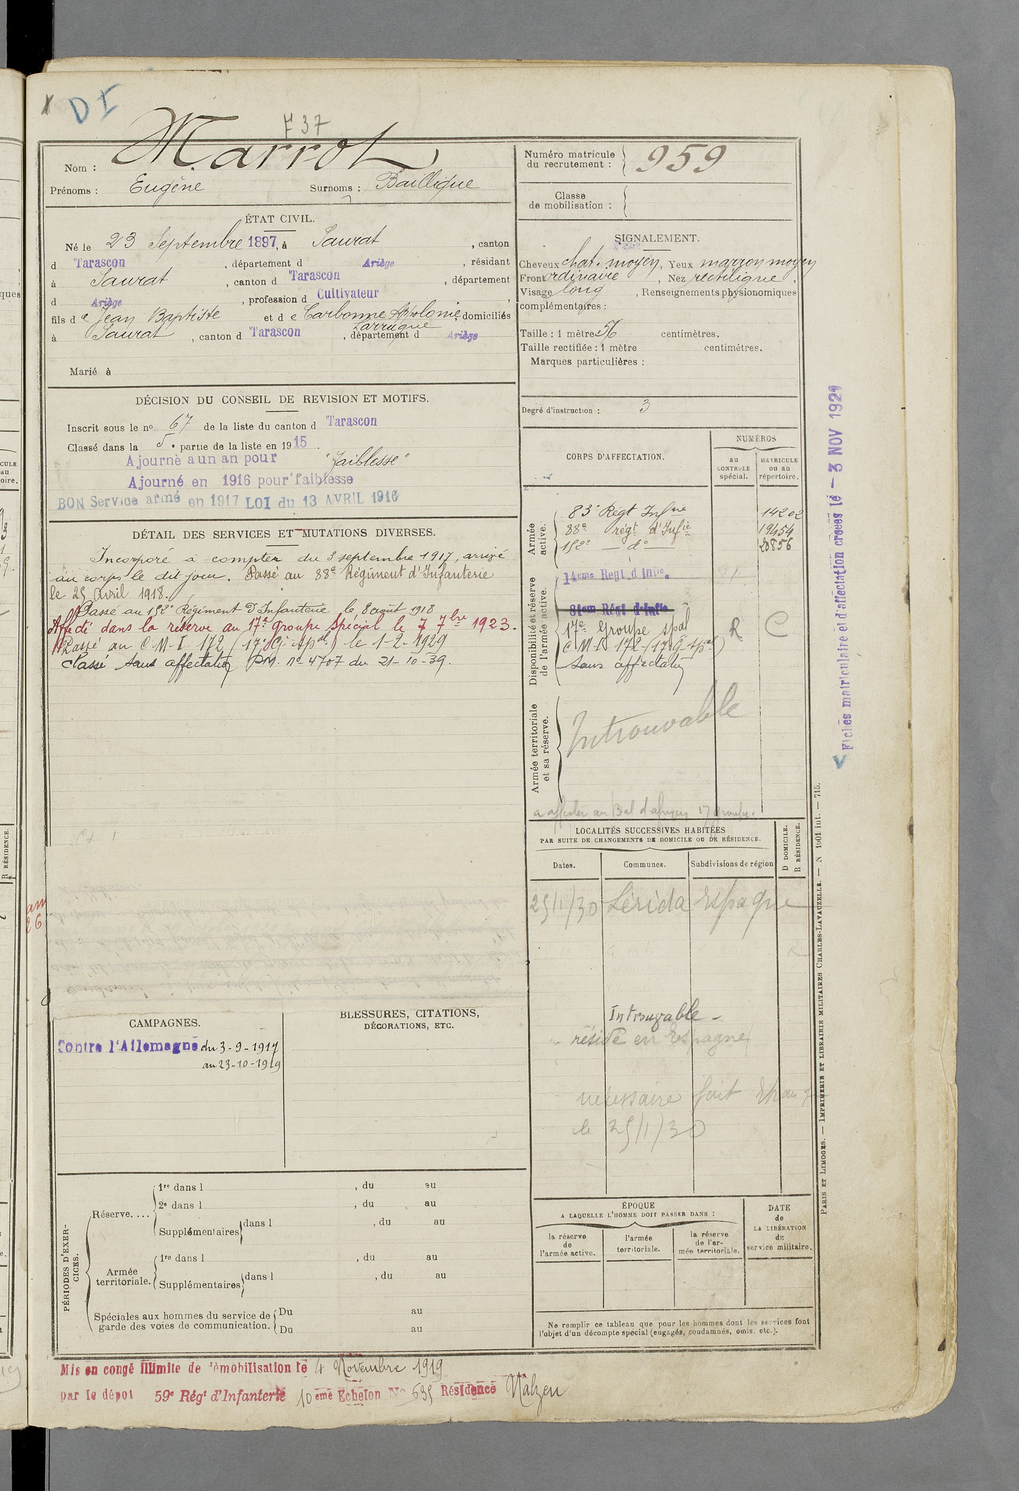 D I
F 37
Nom : Marrot
Prénoms : Eugène Surnoms : Baillique
Numéro matricule du recrutement : 959
Classe de mobilisation :
ÉTAT CIVIL.
Né le 23 Septembre 1897, à Saurat, canton
d Tarascon, département d Ariège, résidant
à Saurat, canton d Tarascon, département
d Ariège, profession d Cultivateur
fils de Jean Baptiste et de Carbonne Apolonie domiciliés
Larrugue
à Saurat, canton d Tarascon, département d Ariège
Marié à
SIGNALEMENT.
Cheveux chat. moyen, Yeux marron moyen
Front ordinaire, Nez rectiligne,
Visage long, Renseignements physionomiques
complémentaires :
Taille : 1 mètre 56 centimètres.
Taille rectifiée : 1 mètre centimètres.
Marques particulières :
Degré d'instruction : 3
DÉCISION DU CONSEIL DE REVISION ET MOTIFS.
Inscrit sous le no 67 de la liste du canton d Tarascon
Classé dans la 5e partie de la liste en 1915.
Ajourné a un an pour "faiblesse"
Ajourné en 1916 pour faiblesse
BON Service armé en 1917 LOI du 13 AVRIL 1916
DÉTAIL DES SERVICES ET MUTATIONS DIVERSES.
Incorporé à compter du 3 septembre 1917, arrivé
au corps le dit jour. Passé au 88e Régiment d'Infanterie
le 25 Avril 1918.
Passé au 152e Régiment d'Infanterie le 8 août 1918
Affecté dans la réserve au 17e groupe Spécial le 7 7bre 1923.
Passé au C.M.I. 172 (17e G. Spal) le 1-2-1929
Classé sans affectation P.M. no 4707 du 21-10-39.
CORPS D'AFFECTATION.
NUMÉROS
AU CONTROLE spécial.
MATRICULE OU AU répertoire.
Armée active.
83e Régt Infrie 14202
88e régt d'Infie 19454
152e — do 20856
Disponibilité et réserve de l'armée active.
14eme Regt d'Infie.
81em Régt d'Infie
17e Groupe spal
C.M.I. 172 (17e G. spal)
sans affectation
R C
Armée territoriale et sa réserve.
Introuvable
Fiches matriculaire et d'affectation créées le - 3 NOV 1921
LOCALITÉS SUCCESSIVES HABITÉES
PAR SUITE DE CHANGEMENTS DE DOMICILE OU DE RÉSIDENCE.
D DOMICILE. R RÉSIDENCE.
Dates. Communes. Subdivisions de région
25/1/30 Lérida Espagne
Introuvable -
réside en Espagne
nécessaire fait
le 25/1/30
CAMPAGNES.
Contre l'Allemagne du 3-9-1917
au 23-10-1919
BLESSURES, CITATIONS, DÉCORATIONS, ETC.
PÉRIODES D'EXERCICES.
Réserve....
1re dans l , du au
2e dans l , du au
Supplémentaires dans l , du au
Armée territoriale.
1re dans l , du au
Supplémentaires dans l , du au
Spéciales aux hommes du service de garde des voies de communication.
Du au
Du au
ÉPOQUE
A LAQUELLE L'HOMME DOIT PASSER DANS :
la réserve de l'armée active.
l'armée territoriale.
la réserve de l'armée territoriale.
DATE de LA LIBÉRATION du service militaire.
Ne remplir ce tableau que pour les hommes dont les services font
l'objet d'un décompte spécial (engagés, condamnés, omis, etc.).
PARIS ET LIMOGES. — IMPRIMERIE ET LIBRAIRIE MILITAIRES CHARLES-LAVAUZELLE. — N 1601 int. — 715.
Mis en congé illimité de démobilisation le 4 Novembre 1919
par le dépôt 59e Régt d'Infanterie 10eme Echelon No 635 Résidence Nalzen